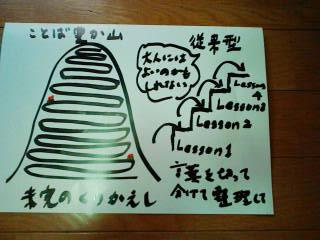 ことば豊か山
従来型
大人には
よいのかも
しれない
Lesson
4
Lesson3
Lesson2
Lesson1
言葉を切って
分けて整理して
未完のくりかえし